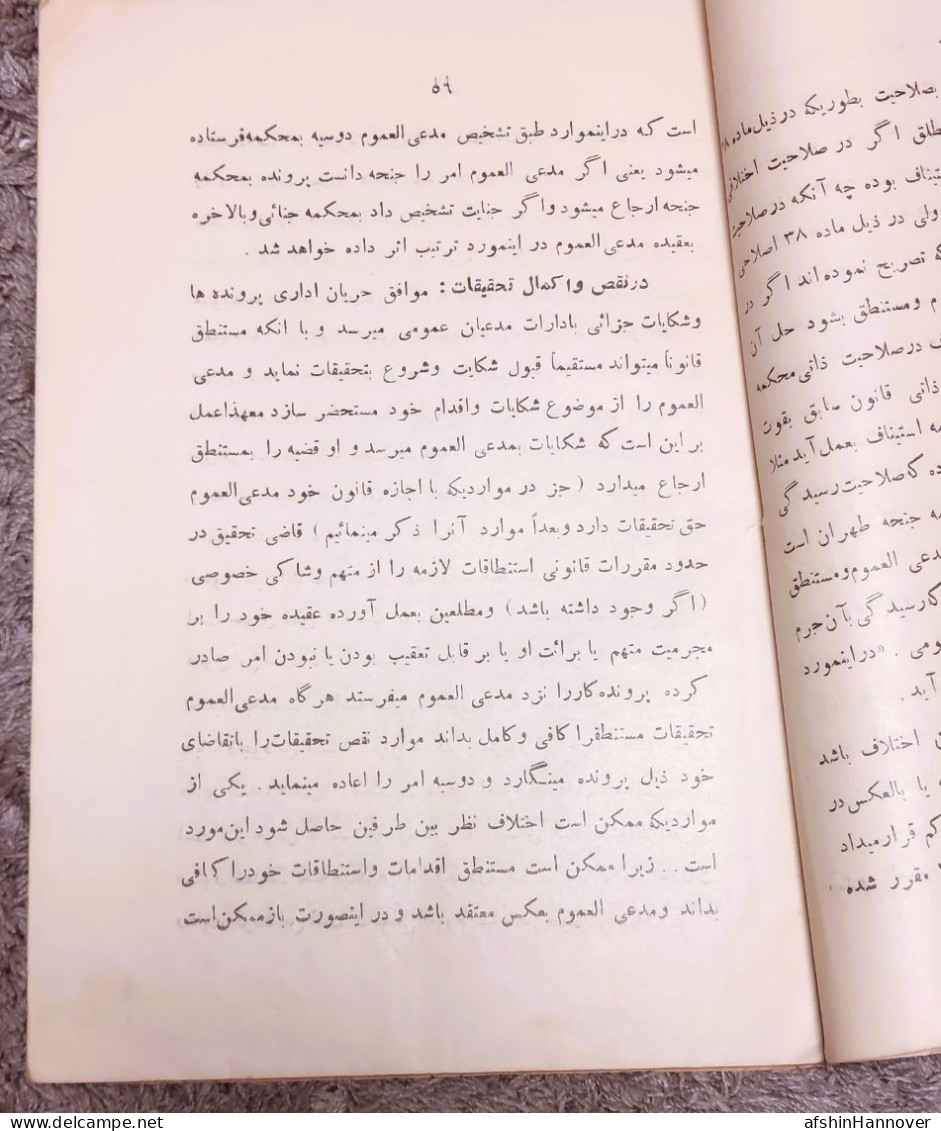 ۵۹
است که دراینموارد طبق تشخیص مدعی‌العموم دوسیه بمحکمه‌فرستاده
میشود یعنی اگر مدعی العموم امر را جنحه دانست پرونده بمحکمه
جنحه ارجاع میشود واگر جنایت تشخیص داد بمحکمه جنائی وبالاخره
بعقیده مدعی‌العموم در اینمورد ترتیب اثر داده خواهد شد .
درنقص واکمال تحقیقات : موافق جریان اداری پرونده ها
وشکایات جزائی بادارات مدعیان عمومی میرسد و با انکه مستنطق
قانوناً میتواند مستقیماً قبول شکایت وشروع بتحقیقات نماید و مدعی
العموم را از موضوع شکایات واقدام خود مستحضر سازد معهذاعمل
براین است که شکایات بمدعی العموم میرسد و او قضیه را بمستنطق
ارجاع میدارد ( جز در مواردیکه با اجازه قانون خود مدعی‌العموم
حق تحقیقات دارد وبعداً موارد آنرا ذکر مینمائیم ) قاضی تحقیق در
حدود مقررات قانونی استنطاقات لازمه را از متهم وشاکی خصوصی
(اگر وجود داشته باشد) ومطلعین بعمل آورده عقیده خود را بر
مجرمیت متهم یا برائت او یا بر قابل تعقیب بودن یا نبودن امر صادر
کرده پرونده کاررا نزد مدعی العموم میفرستد هرگاه مدعی‌العموم
تحقیقات مستنطقرا کافی وکامل بداند موارد نقص تحقیقات‌را باتقاضای
خود ذیل پرونده مینگارد و دوسیه امر را اعاده مینماید . یکی از
مواردیکه ممکن است اختلاف نظر بین طرفین حاصل شود این‌مورد
است . . زیرا ممکن است مستنطق اقدامات واستنطاقات خودرا کافی
بداند ومدعی العموم بعکس معتقد باشد و در اینصورت بازممکن‌است
بصلاحیت بطوریکه درذیل‌ماده ۳۸
طلق اگر در صلاحیت اختلافی
ستیناف بوده چه آنکه درصلاحیت
ولی در ذیل ماده ۳۸ اصلاحی
که تصریح نموده اند اگر در
م ومستنطق بشود حل آن
ف درصلاحیت ذاتی محکمه
ذاتی قانون سابق بقوت
مه استیناف بعمل آید مثلا
ده که‌صلاحیت رسیدگی
مه جنحه طهران است
دعی العموم ومستنطق
که‌رسیدگی بآن‌جرم
ومی . «دراینمورد
آید .
ن اختلاف باشد
ه یا بالعکس در
کم قرارمیداد
ا مقرر شده .
delcampe.net
afshinHannover